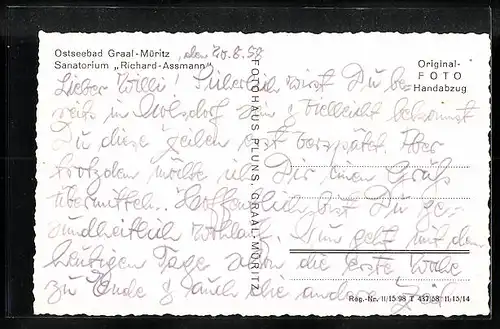 Ostseebad Graal-Müritz
Sanatorium „Richard-Assmann"
den 20.8.58
Original-
FOTO
Handabzug
Lieber Willi! Sicherlich wirst Du be-
reits in sein & vielleicht bekommst
Du diese Zeilen erst verspätet. Aber
trotzdem möchte ich Dir einen Gruß
übermitteln. Hoffentlich bist Du ge-
sundheitlich wohlauf. Nun geht mit dem
heutigen Tage schon die erste Woche
zu Ende & auch die andere Zeit
FOTOHAUS PLUNS, GRAAL-MÜRITZ
Reg.-Nr. II/15/98 T 437/58 II/15/14